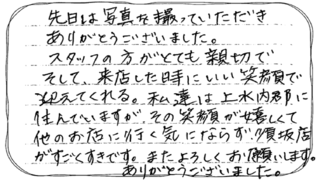 先日は写真を撮っていただき
ありがとうございました。
スタッフの方がとても親切で
そして、来店した時にいい笑顔で
迎えてくれる。私達は上水内郡に
住んでいますが、その笑顔が嬉しくて
他のお店に行く気にならず須坂店
がすごくすきです。またよろしくお願います。
ありがとうございました。